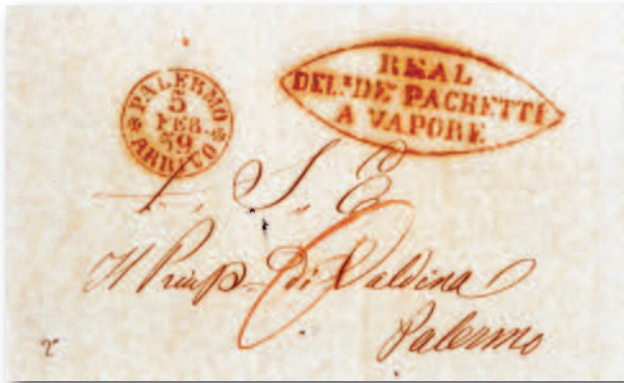 PALERMO
5
FEB.
39
ARRIVO
REAL
DEL.ᴺ DE' PACHETTI
A VAPORE
A S. E.
Il Princip. di Valdina
Palermo